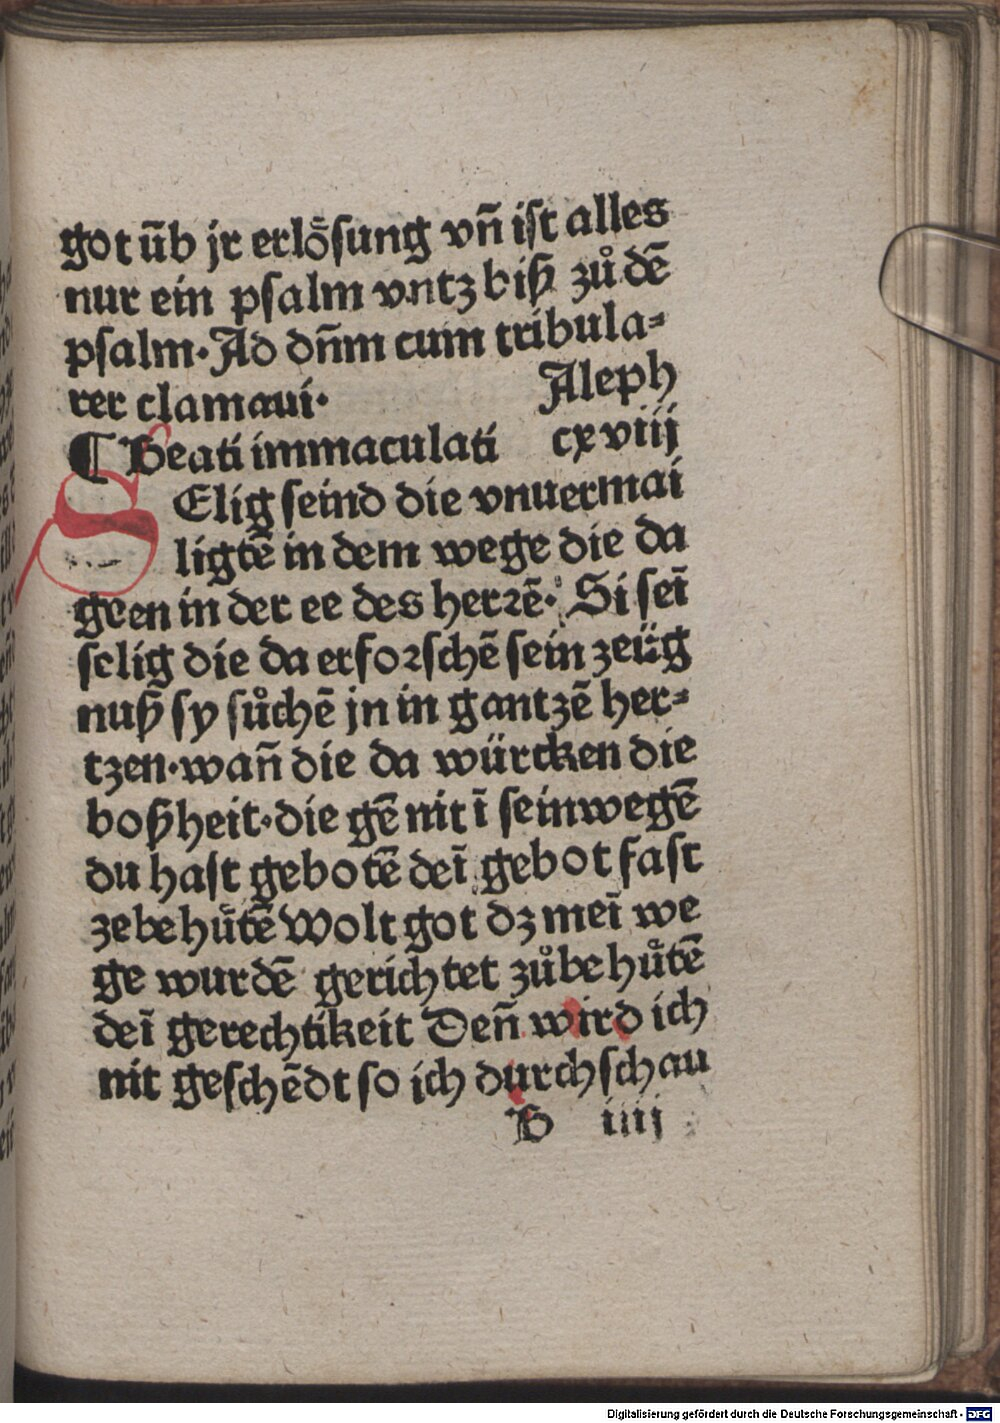 got ūb jr erlo̊sung vn̄ ist alles
nur ein psalm vntz biß zů dē
psalm. Ad dn̄m cum tribula⸗
rer clamaui.
Aleph
¶ Beati immaculati cxviij
SElig seind die vnuermai
ligtē in dem wege die da
geen in der ee des herrē. Si seī
selig die da erforschē sein zeüg
nuß sy sůchē jn in gantzē her⸗
tzen. wan̄ die da würcken die
boßheit. die gē nit ī sein wegē
du hast gebotē deī gebot fast
zebehůtē Wolt got dz meī we
ge wurdē gerichtet zůbehůtē
deī gerechtikeit Den̄ wird ich
nit geschēdt so ich durchschau
B iiij
Digitalisierung gefördert durch die Deutsche Forschungsgemeinschaft - DFG